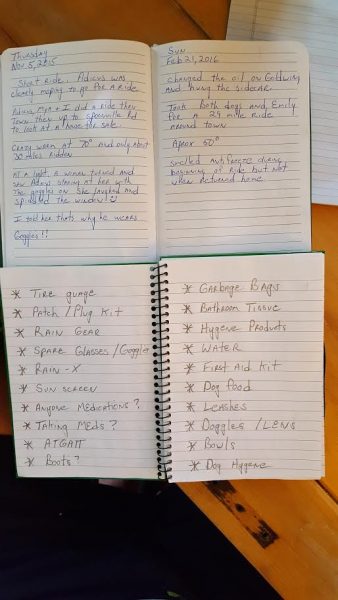 Thursday
Nov. 5, 2015
Short Ride. was
clearly moping to go for a ride.
+ I did a ride thru
Town then up to Rd
to look at a house for sale.
Crazy warm at 70° and only about
30 miles ridden
At a light, a women turned and
saw staring at her with
the goggles on. She laughed and
the window!
I told her thats why he wears
Goggles!!
Sun
Feb 21, 2016
changed the oil on Goldwing
and hung the sidecar.
Took both dogs and Emily
for a 29 mile ride
around town
Aprox 50°
smelled antifreeze during
beginning of ride but not
when returned home
* Tire guage
* Patch / Plug Kit
* Rain Gear
* Spare Glasses / Goggles
* Rain-X
* Sun screen
* Anyone Medications?
* Taking Meds?
* ATGATT
* Boots?
* Garbage Bags
* Bathroom Tissue
* Hygene Products
* Water
* First Aid Kit
* Dog food
* Leashes
* Doggles / Lens
* Bowls
* Dog Hygene